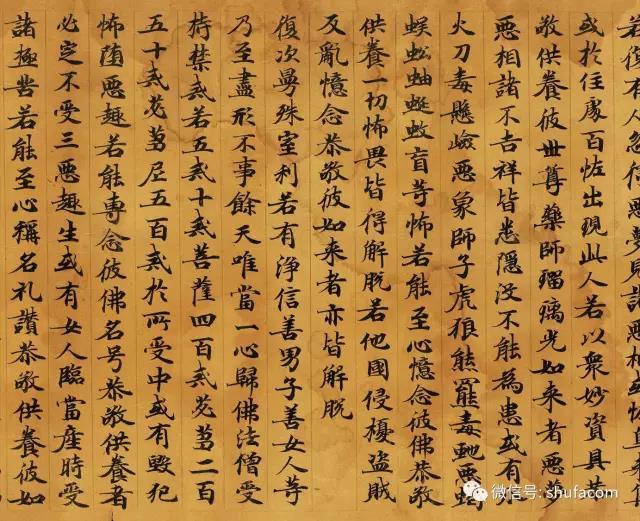 若復有人忽得惡夢見諸惡相或怪鳥
或於住處百恠出現此人若以眾妙資具恭
敬供養彼世尊藥師瑠璃光如来者惡夢
惡相諸不吉祥皆悉隱沒不能為患或有水
火刀毒懸嶮惡象師子虎狼熊羆毒虵惡蝎
蜈蚣蚰蜒蚊盲等怖若能至心憶念彼佛恭敬
供養一切怖畏皆得解脫若他國侵擾盜賊
反亂憶念恭敬彼如来者亦皆解脫
復次曼殊室利若有淨信善男子善女人等
乃至盡形不事餘天唯當一心歸佛法僧受
持禁戒若五戒十戒菩薩四百戒苾芻二百
五十戒苾芻尼五百戒於所受中或有毀犯
怖墮惡趣若能專念彼佛名号恭敬供養者
必定不受三惡趣生或有女人臨當產時受
諸極苦若能至心稱名礼讚恭敬供養彼如
微信号: shufacn